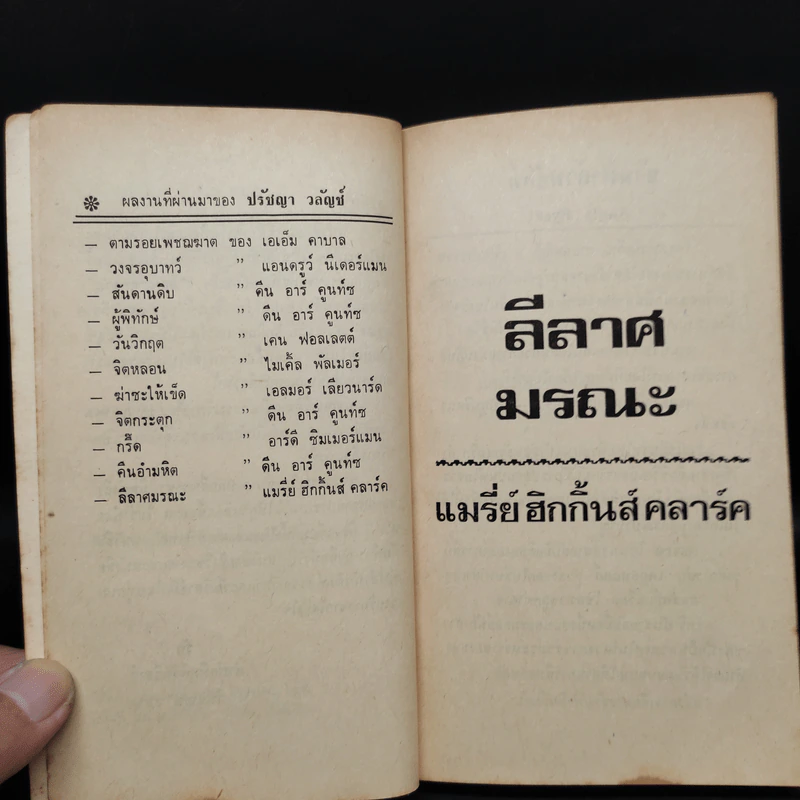 ❊ ผลงานที่ผ่านมาของ ปรัชญา วลัญช์
— ตามรอยเพชฌฆาต ของ เอเอ็ม คาบาล
— วงจรอุบาทว์ " แอนดรูว์ นีเดอร์แมน
— สันดานดิบ " ดีน อาร์ คูนท์ซ
— ผู้พิทักษ์ " ดีน อาร์ คูนท์ซ
— วันวิกฤต " เคน ฟอลเลตต์
— จิตหลอน " ไมเคิ้ล พัลเมอร์
— ฆ่าซะให้เข็ด " เอลมอร์ เลียวนาร์ด
— จิตกระตุก " ดีน อาร์ คูนท์ซ
— กรี๊ด " อาร์ดี ซิมเมอร์แมน
— คืนอำมหิต " ดีน อาร์ คูนท์ซ
— ลีลาศมรณะ " แมรี่ย์ ฮิกกิ้นส์ คลาร์ค
ลีลาศ
มรณะ
แมรี่ย์ ฮิกกิ้นส์ คลาร์ค